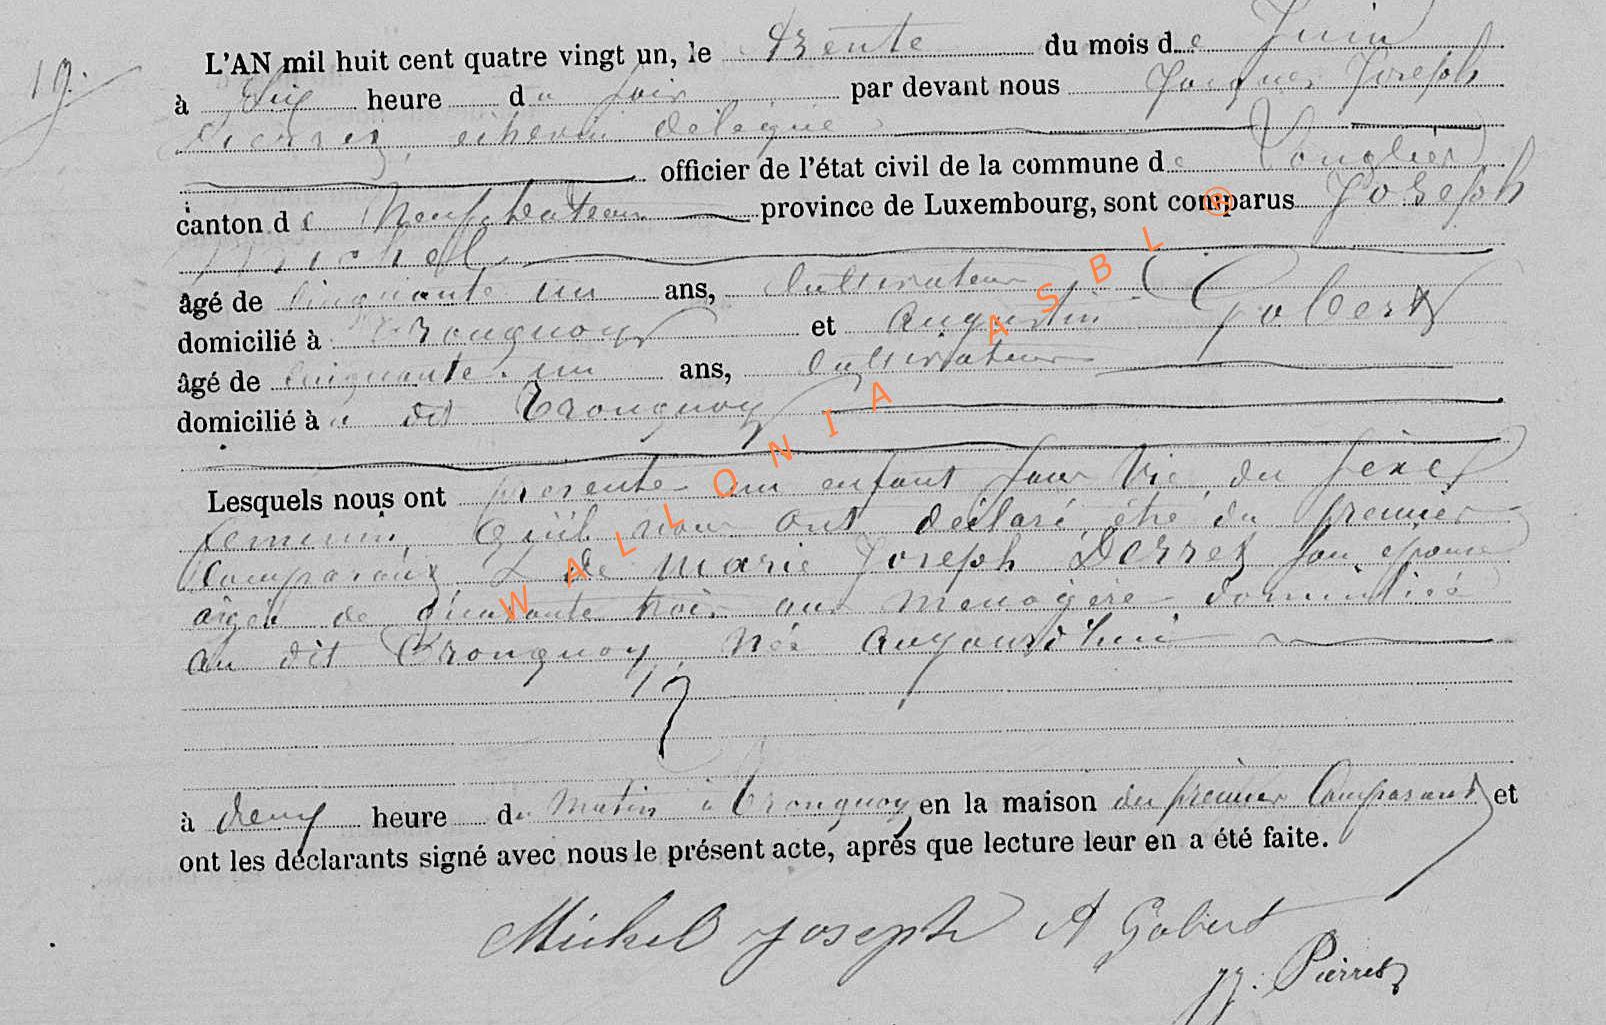 19.
L'AN mil huit cent quatre vingt un, le trente du mois de Juin
à Six heure du soir par devant nous Jacques Joseph
Pierret, échevin délégué
officier de l'état civil de la commune de Longlier
canton de Neufchateau province de Luxembourg, sont comparus Joseph
Michel
âgé de Cinquante un ans, Cultivateur
domicilié à Tronquoy et Augustin Gobert
âgé de Cinquante un ans, Cultivateur
domicilié à u dit Tronquoy
Lesquels nous ont présenté un enfant sans Vie, du sexe
feminin, Qu'il nous ont déclaré être du premier
Comparant & de Marie Joseph Derret son épouse
agée de quarante trois ans menagère domiciliée
au dit Tronquoy, née aujourd'hui
à deux heure du matin à Tronquoy en la maison du premier Comparant et
ont les déclarants signé avec nous le présent acte, après que lecture leur en a été faite.
Michel Joseph A Gobert
JJ. Pierret
WALLONIA ASBL ®